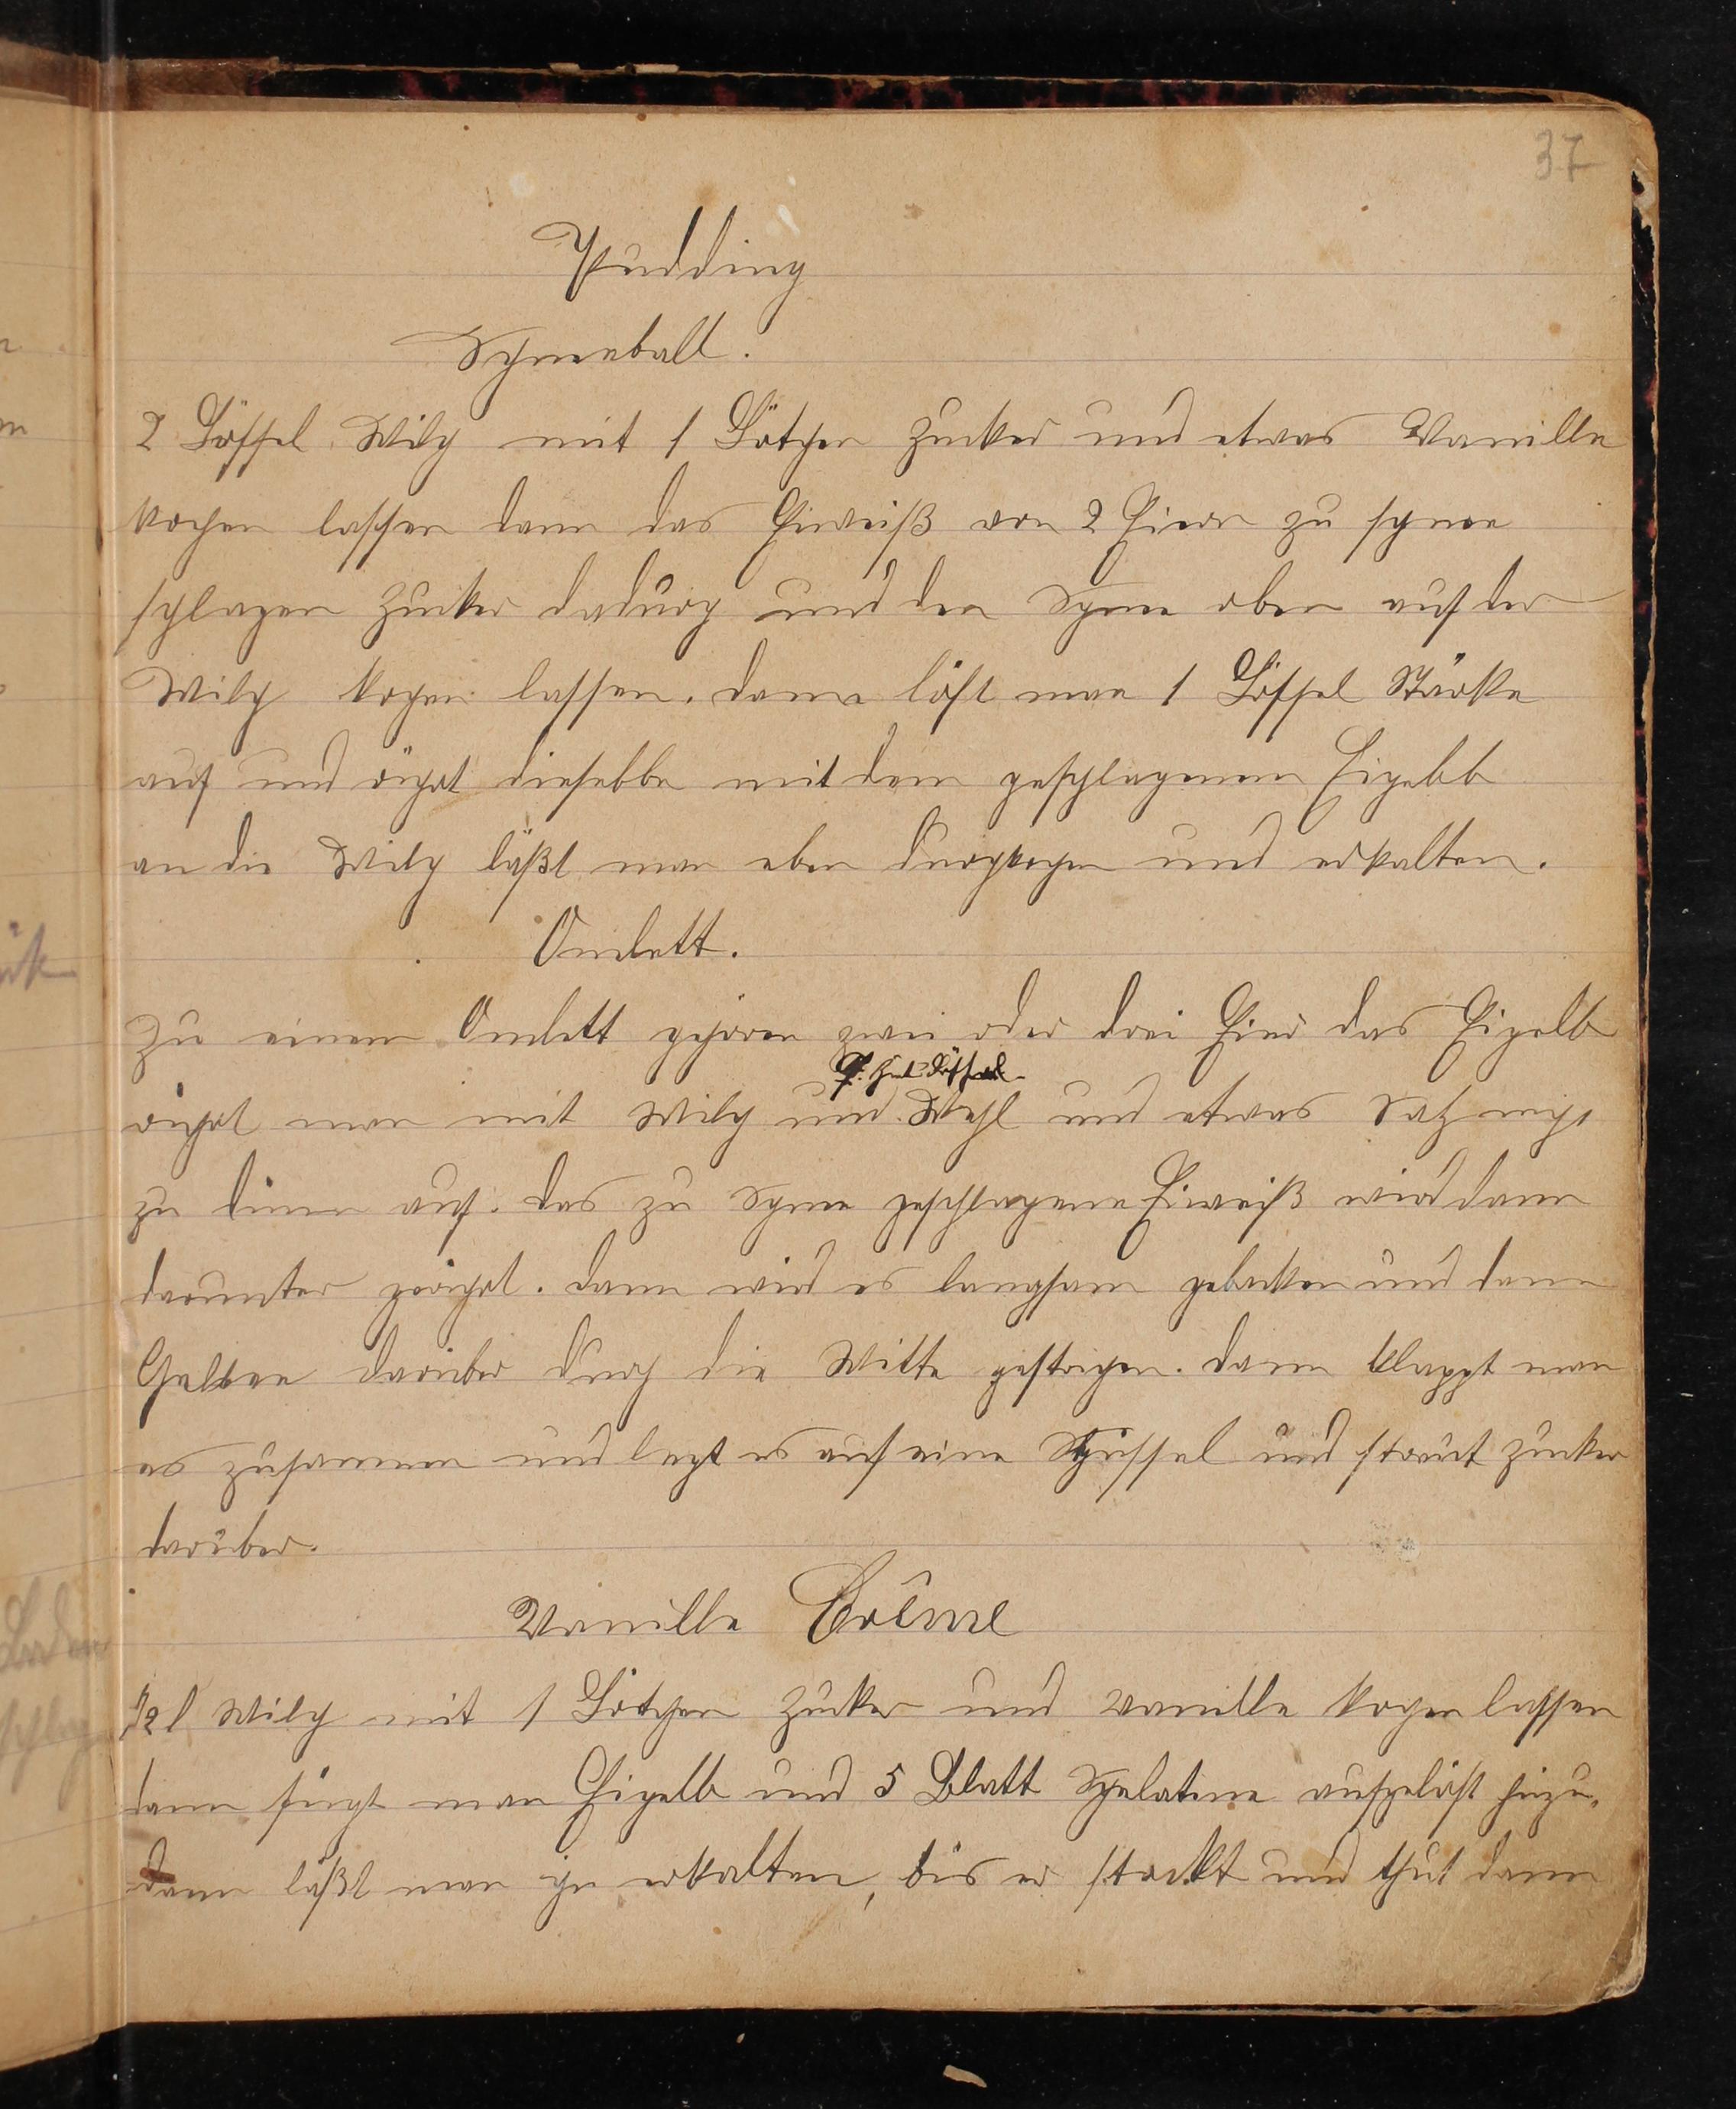 37
Pudding
Schneeball.
2 Löffel Milch mit 1 Lötchen Zucker und etwas Vanille
kochen lassen dann das Eiweiß von 2 Eiern zu schnee
schlagen Zucker dadurch und den Schnee oben auf der
Milch kochen lassen. dann löst man 1 Löffel Stärke
auf und rührt dieselbe mit dem geschlagenen Eigelb
an die Milch läßt man eben durchkochen und erkalten.
Omlett.
Zu einem Omlett gehören zwei oder drei Eier das Eigelb
rührt man mit Milch und Mehl und etwas Salz nicht
zu dünn auf. das zu Schnee geschlagene Eiweiß wird dann
darunter gerührt. dann wird es langsam gebacken und dann
Gelee darüber durch die Mitte gestrichen. dann klappt man
es zusammen und legt es auf eine Schüssel und streut Zucker
darüber.
Vanille Crême
1/2 l Milch mit 1 Lötchen Zucker und Vanille kochen lassen
dann fügt man Eigelb und 5 Blatt Gelatine aufgelöst hinzu.
dann läßt man ihn erkalten, bis er stockt und thut dann